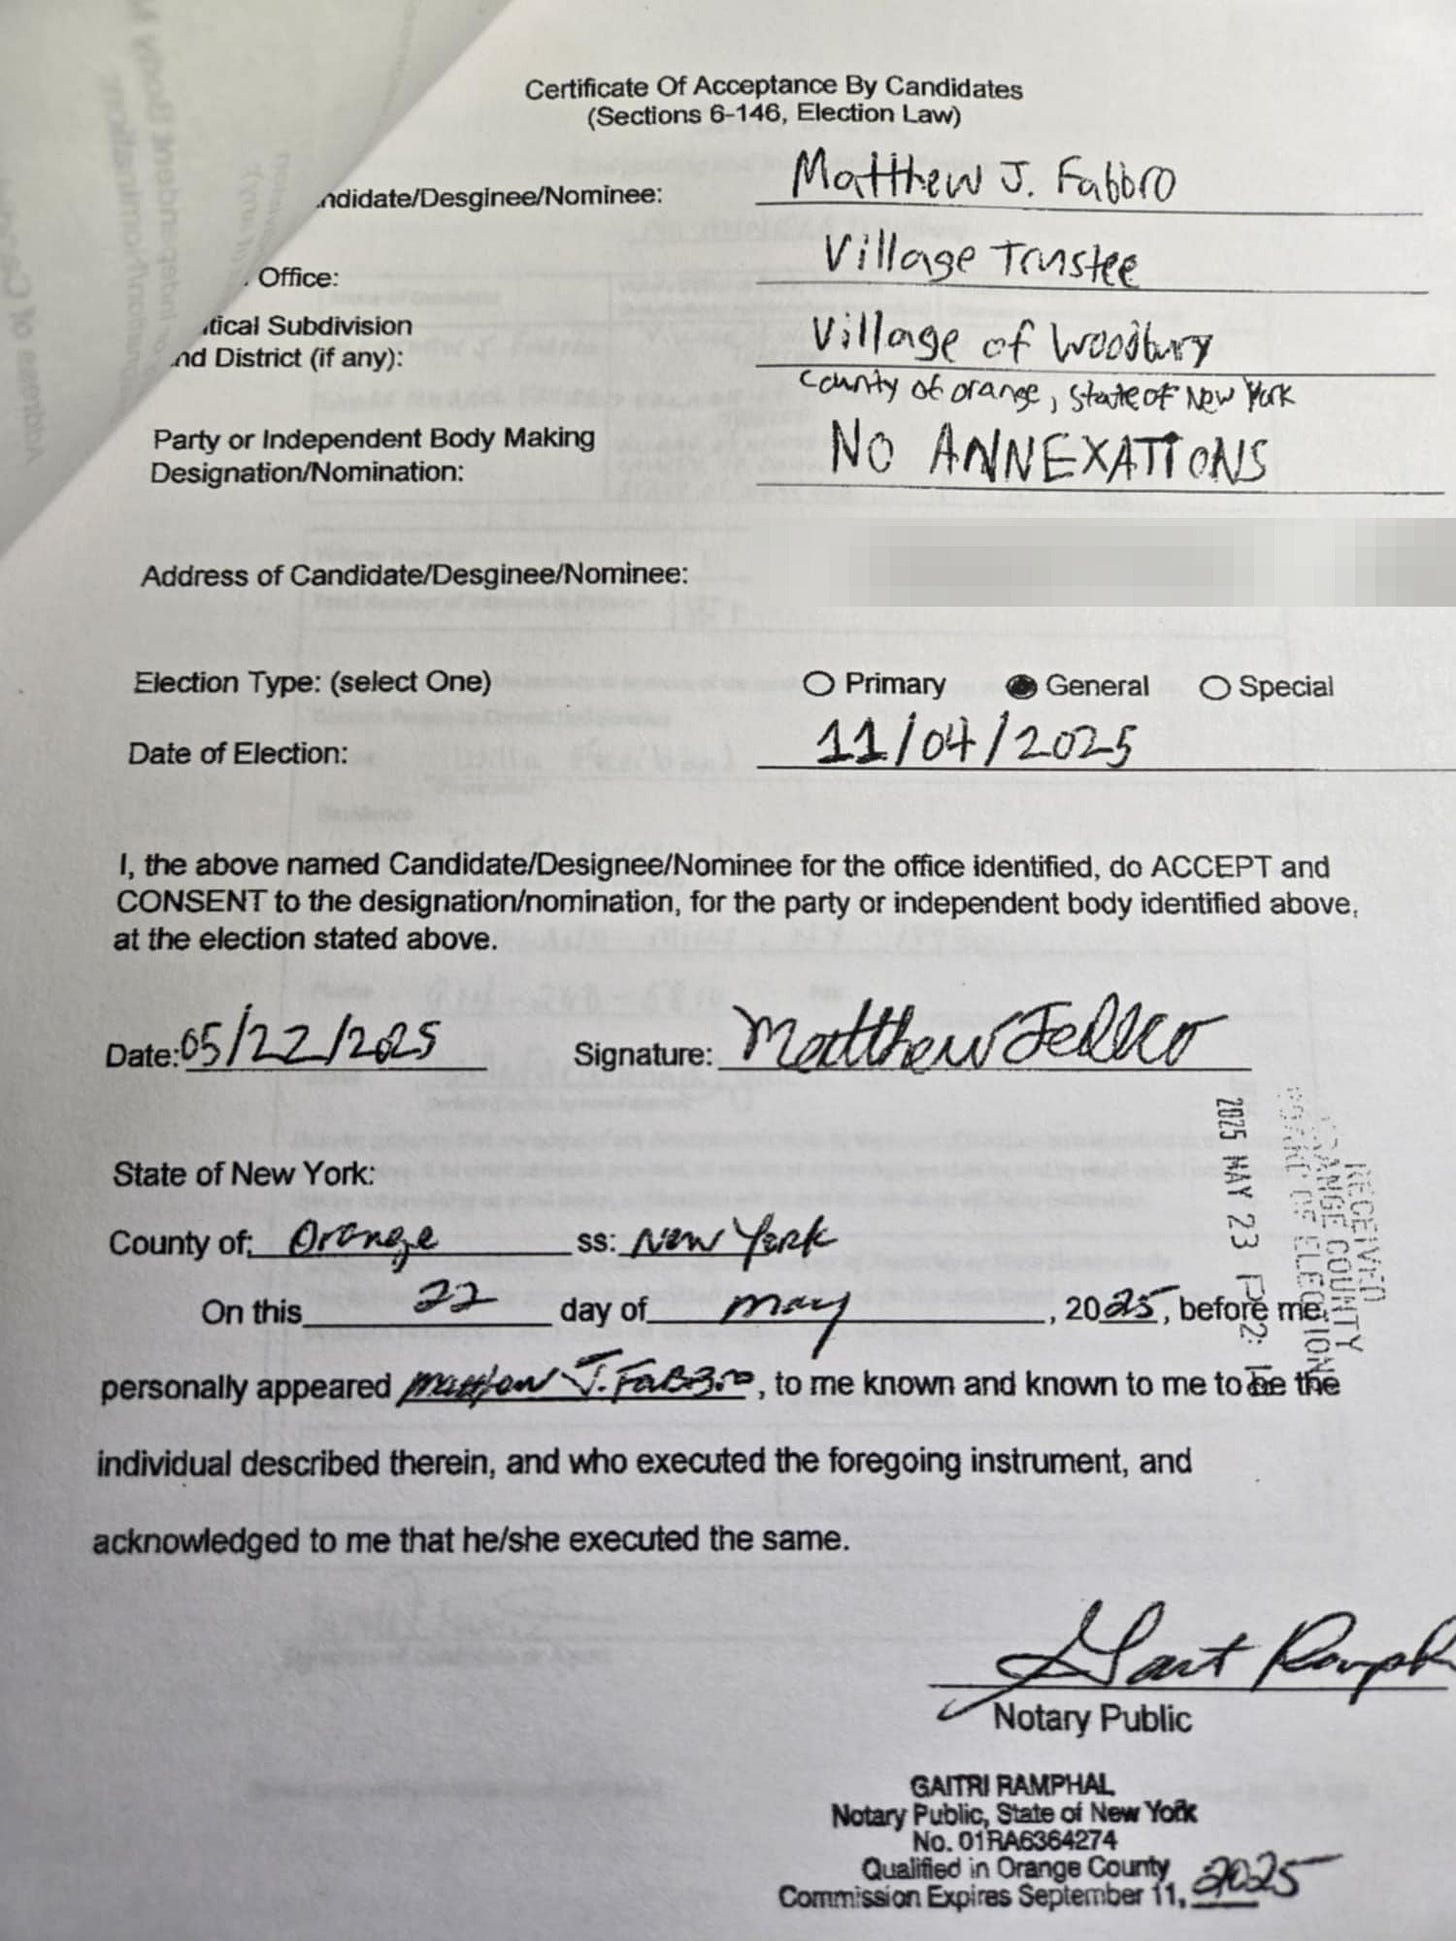 Certificate Of Acceptance By Candidates
(Sections 6-146, Election Law)
ndidate/Desginee/Nominee: Matthew J. Fabbro
Office: Village Trustee
tical Subdivision
nd District (if any): Village of Woodbury
County of Orange, State of New York
Party or Independent Body Making
Designation/Nomination: NO ANNEXATIONS
Address of Candidate/Desginee/Nominee:
Election Type: (select One) Primary General Special
Date of Election: 11/04/2025
I, the above named Candidate/Designee/Nominee for the office identified, do ACCEPT and
CONSENT to the designation/nomination, for the party or independent body identified above,
at the election stated above.
Date: 05/22/2025 Signature: Matthew
RECEIVED
ORANGE COUNTY
BOARD OF ELECTION
2025 MAY 23 P 2:
State of New York:
County of: Orange ss: New York
On this 22 day of may, 2025, before me,
personally appeared Matthew J. Fabbro, to me known and known to me to be the
individual described therein, and who executed the foregoing instrument, and
acknowledged to me that he/she executed the same.
Notary Public
GAITRI RAMPHAL
Notary Public, State of New York
No. 01RA6364274
Qualified in Orange County
Commission Expires September 11, 2025